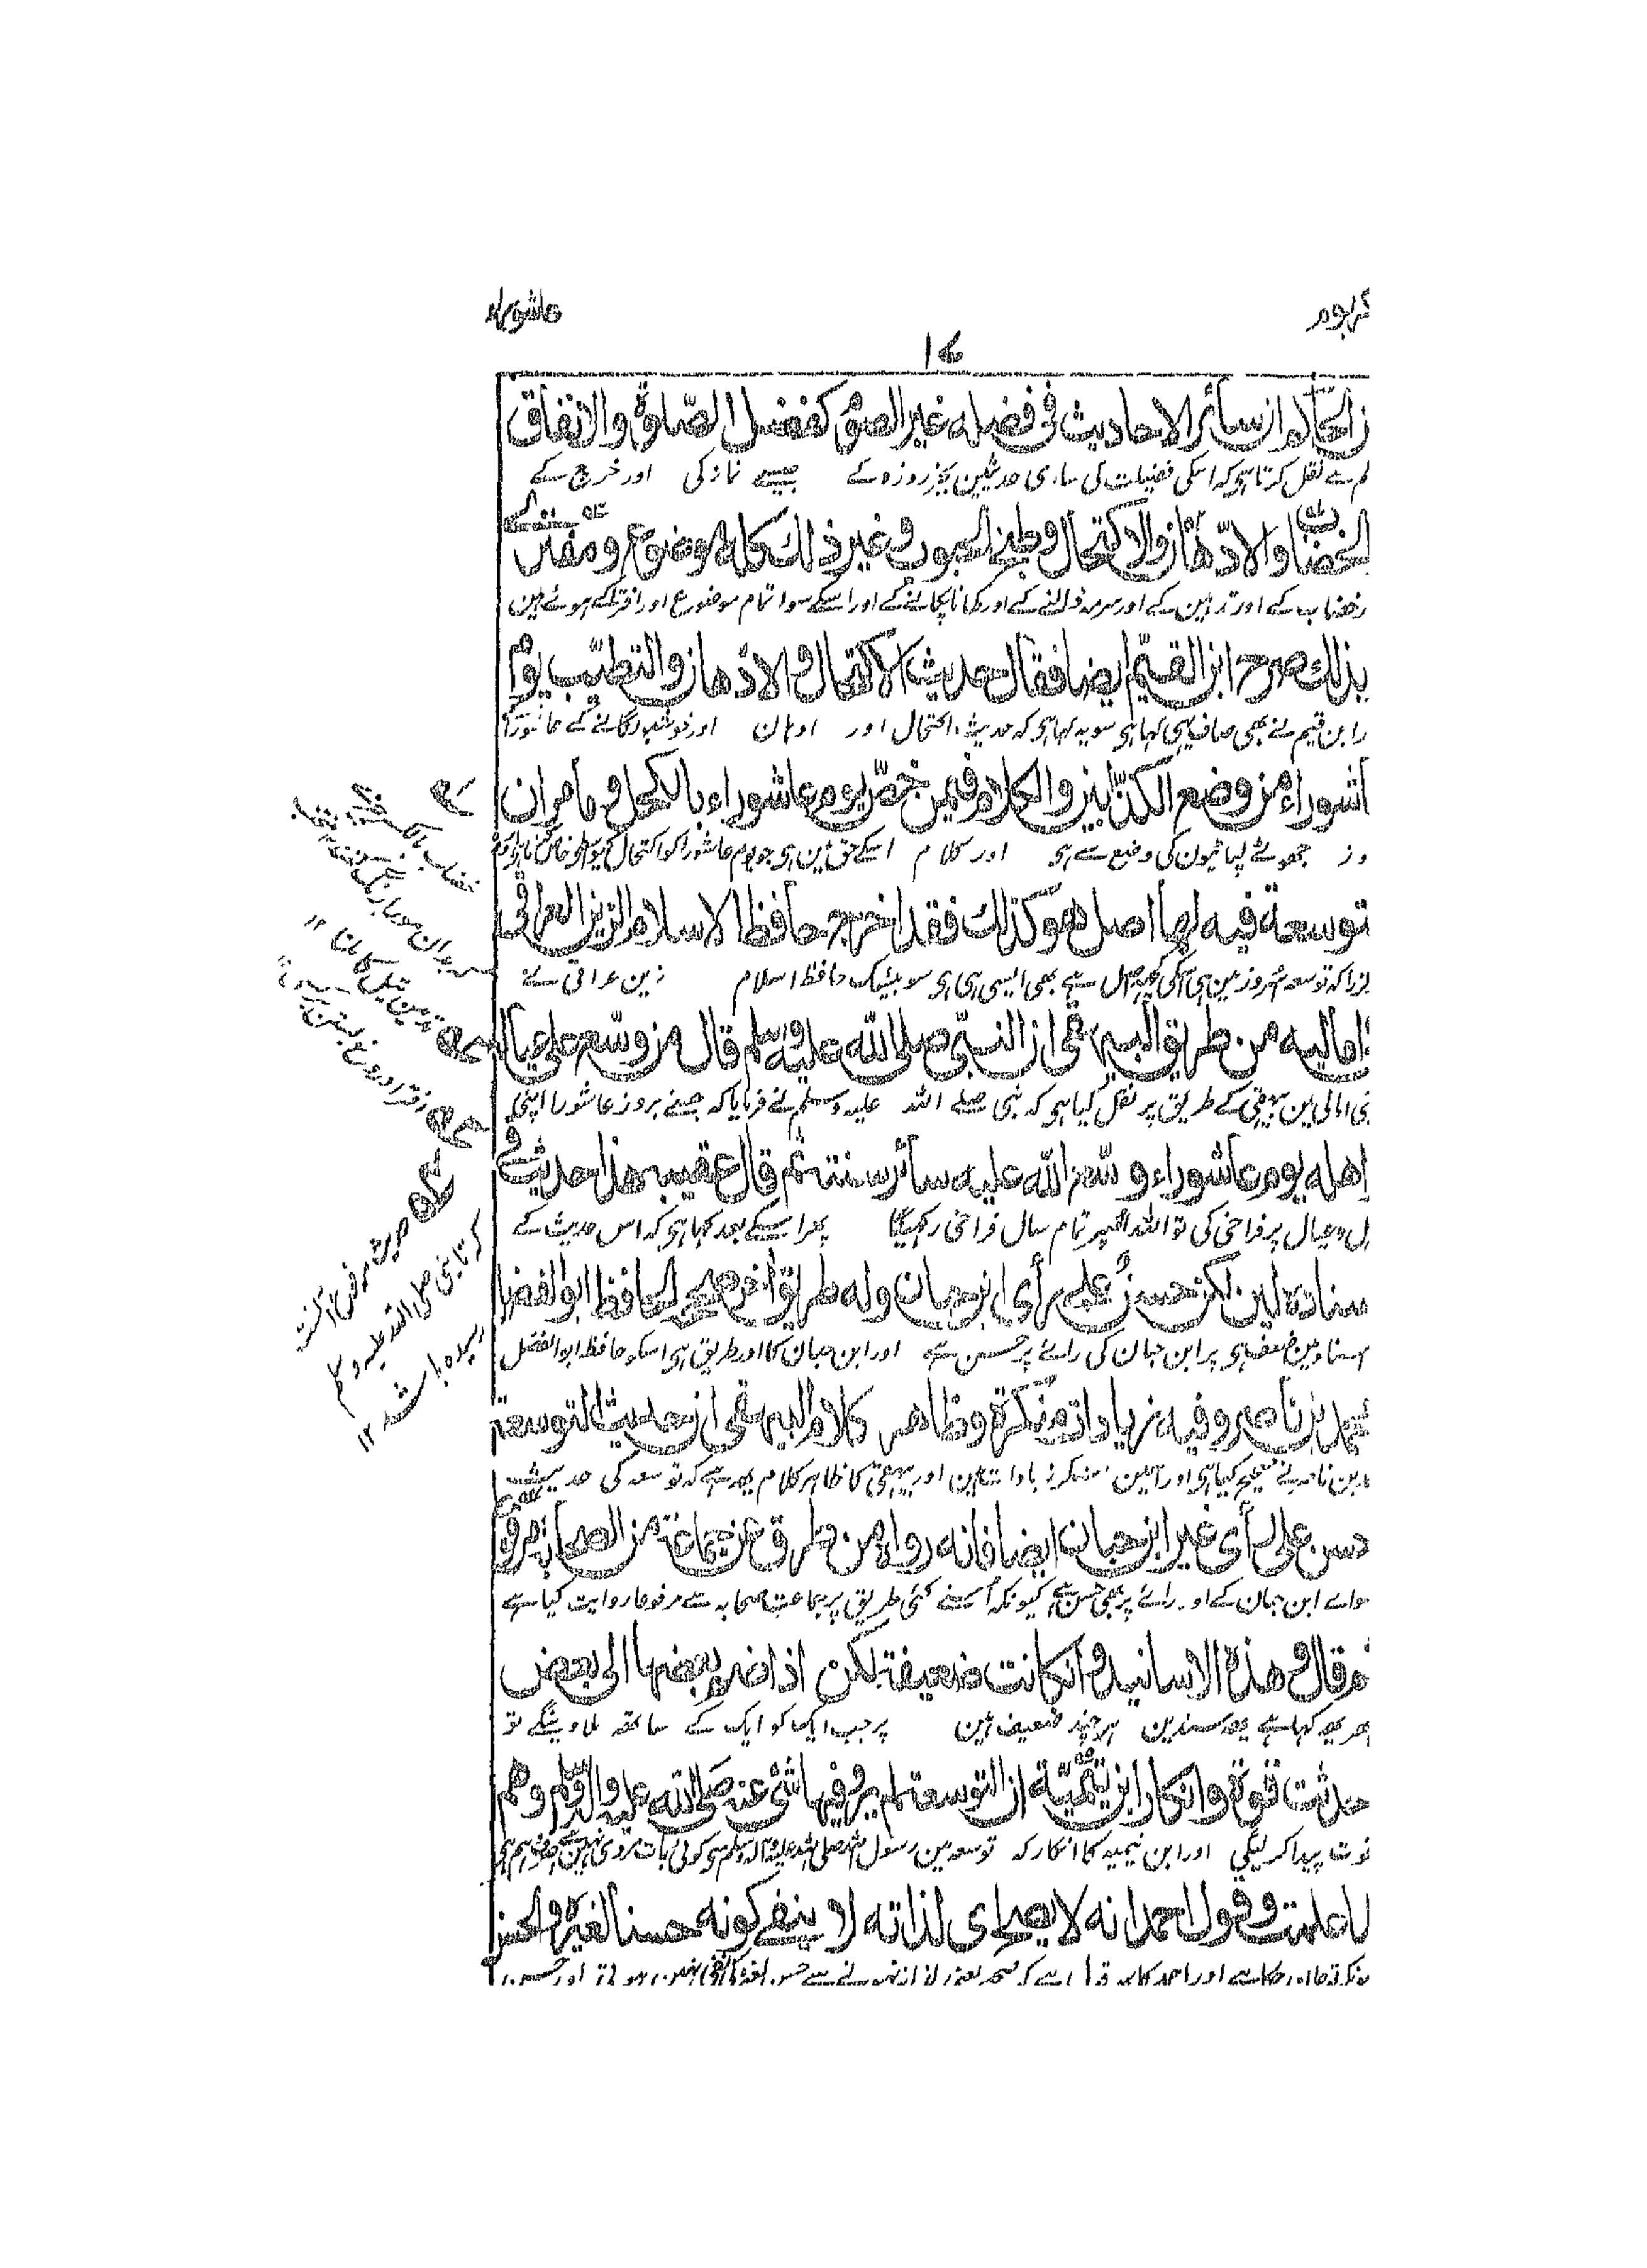 عاشوراء
١٤
الحاكم ان سائر الاحاديث فى فضله غير الصوم كفضل الصلوة والانفاق
م سے نقل کرتا ہی کہ اسکی فضیلت کی ساری حدیثین بجز روزہ کے جیسے نماز کی اور خرچ کے
الخضاب والادهان والاكتحال وطبخ الحبوب وغير ذلك كله موضوع ومفترى
خضاب کے اور تدہین کے اور سرمہ ڈالنے کے اور کھانا پکانے کے اور اسکے سوا تمام موضوع اور افترا کئے ہوئے ہین
بذلك صرح ابن القيم ايضا فقال حديث الاكتحال والادهان والتطيب يوم
ابن قیم نے بھی صاف یہی کہا ہی سو یہ کہا ہی کہ حدیث اکتحال اور ادہان اور خوشبو لگانے کے عاشورا
عاشوراء من وضع الكذابين والكلام فيمن خص يوم عاشوراء بالكحل وما مر ان
وز جھوٹے لپاٹیون کی وضع سے ہی اور کلام اسکے حق مین ہی جو یوم عاشورا کو اکتحال
توسعة فيه لها اصل هو كذلك فقد اخرج حافظ الاسلام الزين العراقى
گذرا کہ توسعہ اس روز مین اسکی کچھ اصل ہے بھی ایسی ہی ہی سو بیشک حافظ اسلام زین عراقی نے
اماليه من طريق البيهقى ان النبى صلى الله عليه وسلم قال من وسع على عياله
نی امالی مین بیہقی کے طریق پر نقل کیا ہی کہ نبی صلے اللہ علیہ وسلم نے فرمایا کہ جسنے بروز عاشورا اپنی
اهله يوم عاشوراء وسع الله عليه سائر سنته ثم قال عقيبه هذا حديث فى
اہل و عیال پر فراخی کی تو اللہ اسپر تمام سال فراخی رکھیگا پھر اسکے بعد کہا ہی کہ اس حدیث کے
سناده لين لكن حسن على رأى ابن حبان وله طريق اخر صححه الحافظ ابو الفضل
اسناد مین ضعف ہی پر ابن حبان کی رائے پر حسن ہے اور ابن حبان کا اور طریق ہی اسکو حافظ ابو الفضل
محمد بن ناصر وفيه زيادات منكرة وظاهر كلام البيهقى ان حديث التوسعة
بن ناصر نے صحیح کہا ہی اور اسمین منکر زیادات ہین اور بیہقی کا ظاہر کلام یہ ہے کہ توسعہ کی حدیث
حسن على رأى غير ابن حبان ايضا فانه رواه من طرق عن جماعة من الصحابة مرفوعا
سواے ابن حبان کے اور رائے پر بھی حسن ہے کیونکہ اسنے کئی طریق پر جماعت صحابہ سے مرفوعا روایت کیا ہے
ثم قال وهذه الاسانيد وان كانت ضعيفة لكن اذا ضم بعضها الى بعض
پھر یہ کہا ہے یہ سندین ہرچند ضعیف ہین پر جب ایک کو ایک کے ساتھ ملاوینگے تو
حدثت قوة وانكار ابن تيمية ان التوسعة لم يرو فيها شئ عنه صلى الله عليه واله وسلم وهم
قوت پیدا کر لیگی اور ابن تیمیہ کا انکار کہ توسعہ مین رسول اللہ صلی اللہ علیہ وآلہ وسلم سے کوئی بات مروی نہین ہے
لما علمت وقول احمد انه لا يصح اى لذاته لا ينفى كونه حسنا لغيره والحسن
حدیث مرفوع آنست
کہ تا نبی صلی اللہ علیہ وسلم
رسیدہ باشد ١٢